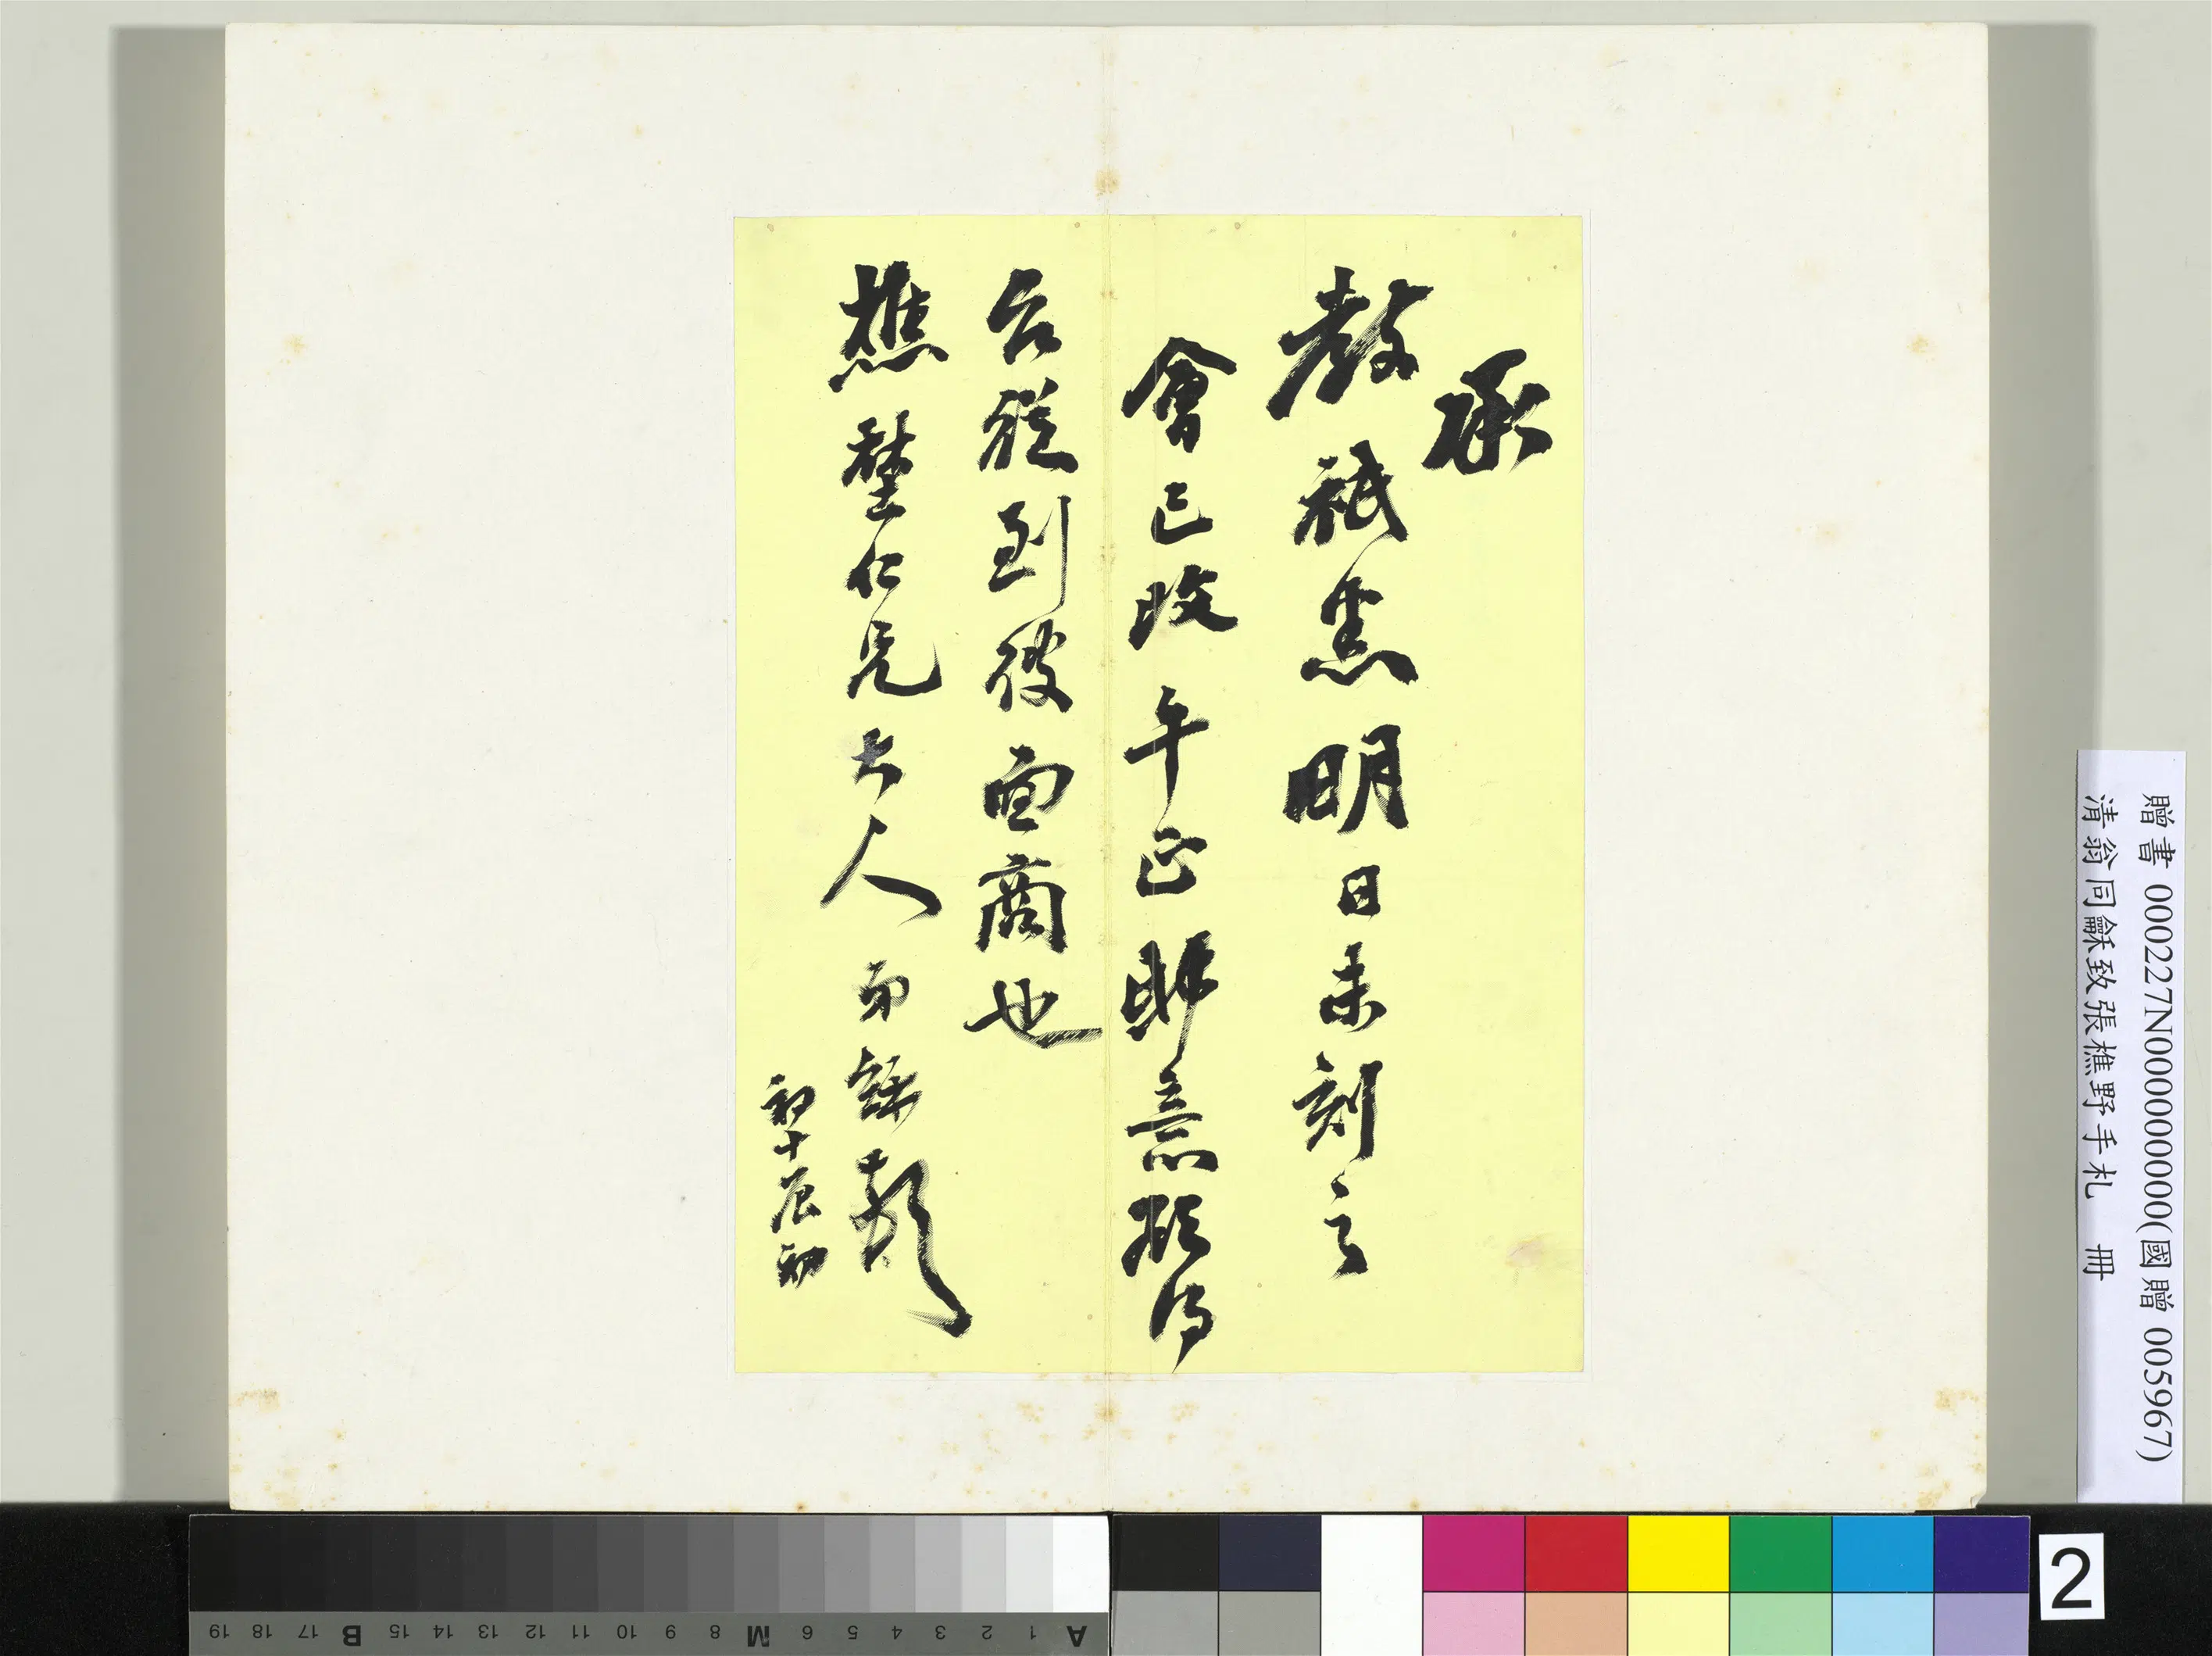 承
教祇悉明日未刻之
會已改午正鄙意擬俟
台從到後面商也
樵埜仁兄大人 弟龢頓
初十辰初
贈書 000227N000000000(國贈 005967)
清翁同龢致張樵野手札 冊
A 1 2 3 4 5 6 M 8 9 10 11 12 13 14 15 B 17 18 19
2